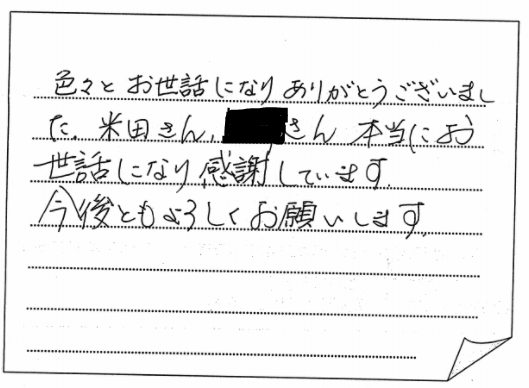 色々とお世話になりありがとうございまし
た。米田さん、さん 本当にお
世話になり感謝しています。
今後ともよろしくお願いします。